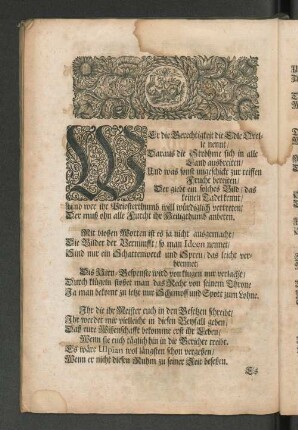 WEr die Gerechtigkeit die Edle Quel-
le nennt/
Daraus die Ströhme sich in alle
Land ausbreiten/
Und was sonst ungeschickt zur reiffen
Frucht bereiten/
Der giebt ein solches Bild/ das
keinen Tadel kennt;
Und wer ihr Priesterthumb will würdiglich vertreten/
Der muß ohn alle Furcht ihr Heiligthumb anbeten.
Mit bloßen Worten ist es ja nicht ausgemacht;
Die Bilder der Vernunfft/ so man Ideen nennet/
Sind nur ein Schattenwerck und Spreu/ das leicht ver-
brennet;
Dis Hirn-Gespenste wird von klugen nur verlacht;
Durch klügeln stößet man das Recht von seinem Throne
Ja man bekömt zu letzt nur Schimpff und Spott zum Lohne.
Ihr die ihr Meister euch in den Gesetzen schreibt;
Ihr werdet mir vielleicht in diesen Beyfall geben/
Daß eure Wissenschafft bekomme erst ihr Leben/
Wenn sie euch täglich hin in die Gerichte treibt.
Es wäre Ulpian wol längsten schon vergessen/
Wenn er nicht diesen Ruhm zu seiner Zeit besessen.